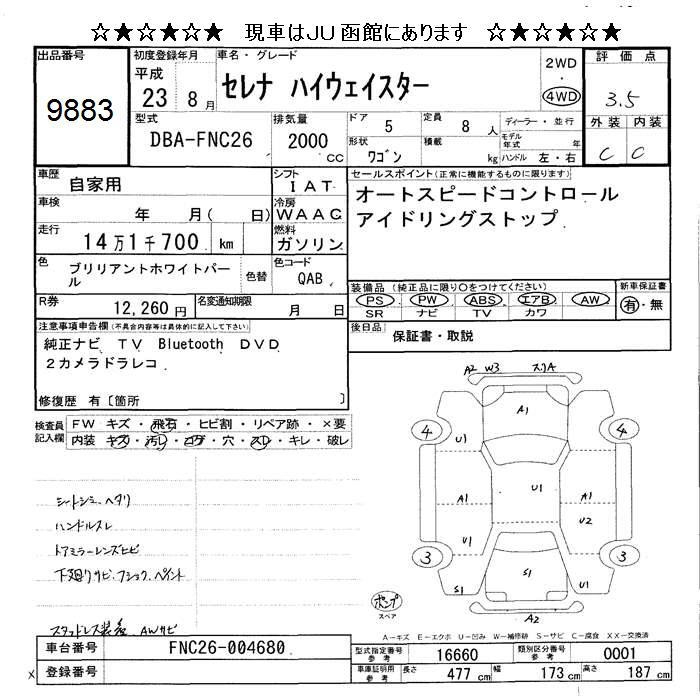 ☆★☆★☆★ 現車はJU函館にあります ☆★☆★☆★
出品番号
9883
初度登録年月
平成
23 8月
車名・グレード
セレナ ハイウェイスター
2WD
・
4WD
評価点
3.5
外装 内装
C C
型式
DBA-FNC26
排気量
2000
CC
ドア 5
形状 ワゴン
定員 8 人
積載 kg
ディーラー・並行
モデル年式 年
ハンドル 左・右
車歴 自家用
シフト IAT
車検 年 月( 日)
冷房 WAAC
走行 14万1千700 km
燃料 ガソリン
色 ブリリアントホワイトパール
色替
色コード QAB
R券 12,260円
名変通知期限 月 日
セールスポイント(正常に機能するものに限ります)
オートスピードコントロール
アイドリングストップ
装備品(純正品に限り○をつけてください)
PS PW ABS エアB AW
SR ナビ TV カワ
新車保証書
有・無
後日品 保証書・取説
注意事項申告欄(不具合内容等は具体的に記入して下さい)
純正ナビ TV Bluetooth DVD
2カメラドラレコ
修復歴 有〔箇所 〕
検査員記入欄
FW キズ・飛石・ヒビ割・リペア跡・×要
内装 キズ・汚レ・コゲ・穴・スレ・キレ・破レ
シートシミ、ヘタリ
ハンドルスレ
ドアミラーレンズヒビ
下廻りサビ、フショク、ペイント
スタッドレス装着 AWサビ
A2 W3 スリA
A1
4 4
U1 U1
A1 U1 A1
U2
U1
3 3
S1 S1 U1
A2
ポンプ
スペア
A−キズ E−エクボ U−凹み W−補修跡 S−サビ C−腐食 XX−交換済
車台番号 FNC26-004680
型式指定番号 参考 16660
類別区分番号 参考 0001
×
登録番号
車庫証明用 参考
長さ 477 cm
幅 173 cm
高さ 187 cm